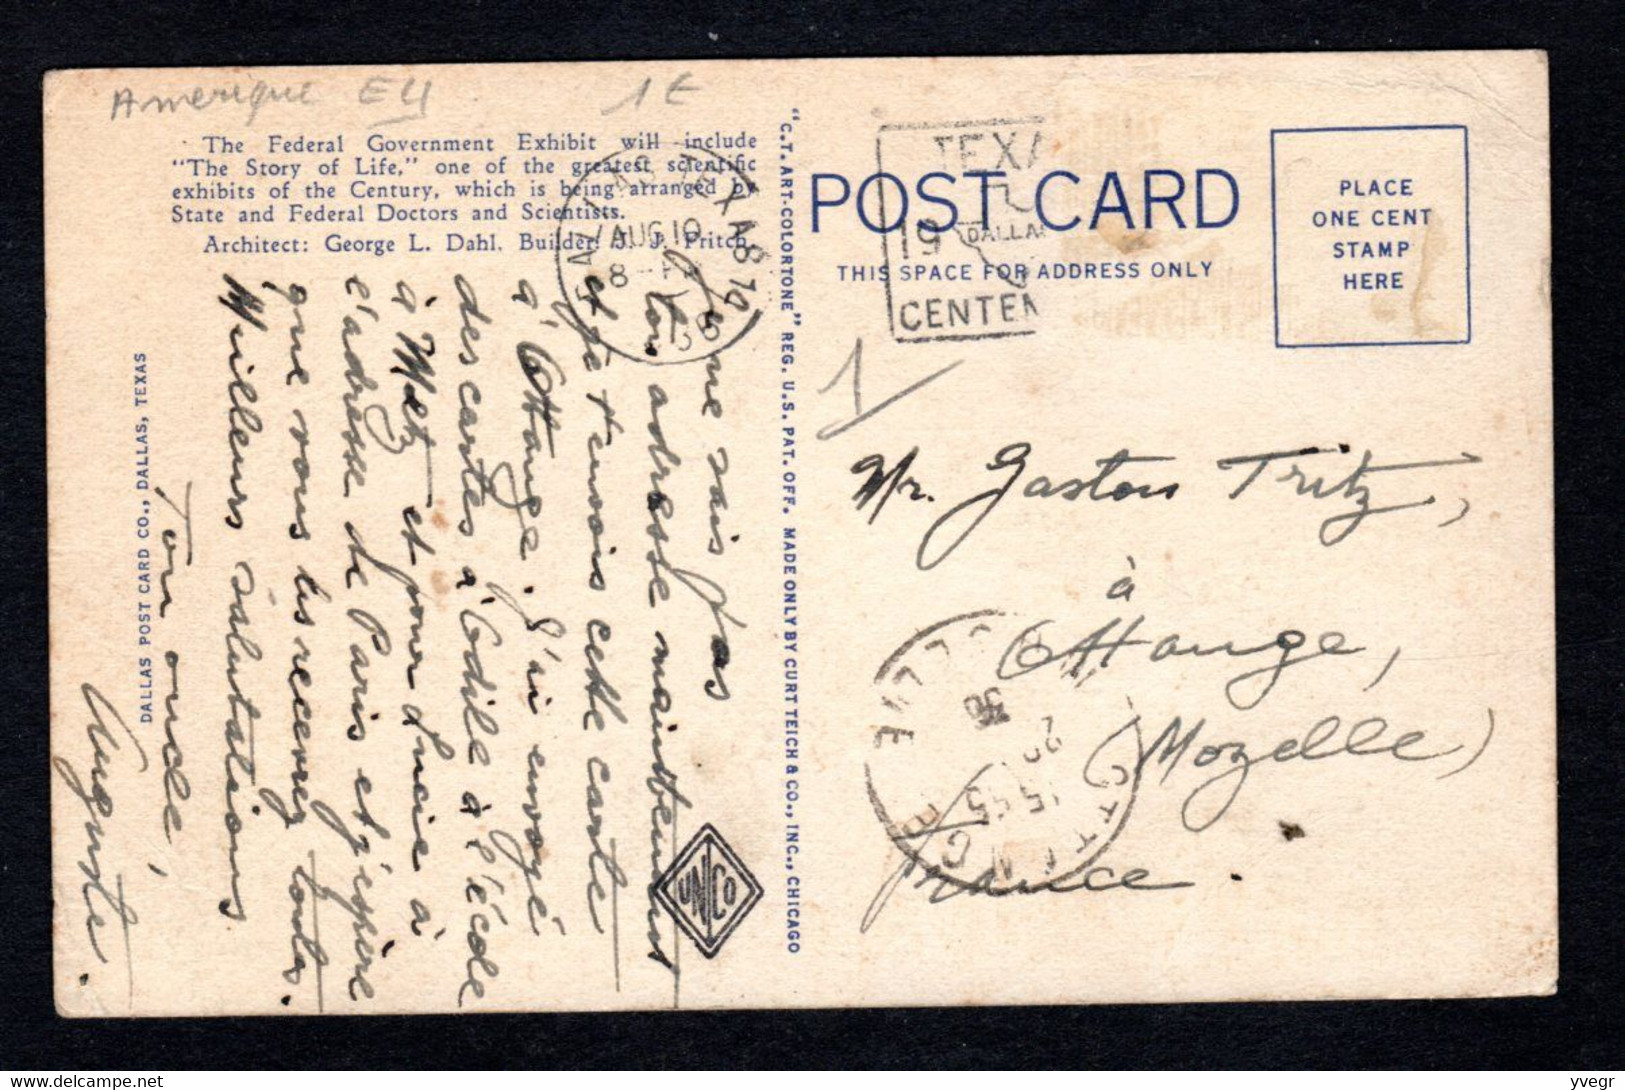 Amerique EU 1€
The Federal Government Exhibit will include
"The Story of Life," one of the greatest scientific
exhibits of the Century, which is being arranged by
State and Federal Doctors and Scientists.
Architect: George L. Dahl. Builder: J. J. Fritch.
DALLAS, TEXAS
AUG 19
8
1936
Je ne sais pas
ton adresse maintenant
et je t'envois cette carte
à Ottange. J'ai envoyé
des cartes à Odile à l'école
à Metz et pour Lucie à
l'adresse de Paris et j'espère
que vous les recevrez toutes.
Milleurs salutations
Ton oncle,
Auguste.
DALLAS POST CARD CO., DALLAS, TEXAS
UNICO
"C.T. ART-COLORTONE" REG. U.S. PAT. OFF. MADE ONLY BY CURT TEICH & CO., INC., CHICAGO
TEXA
19 DALLA
CENTEN
POST CARD
THIS SPACE FOR ADDRESS ONLY
PLACE
ONE CENT
STAMP
HERE
1
Mr. Gaston Tritz,
à
Ottange,
(Mozelle)
France.
OTTANGE
MOSELLE
15 45
36
yvegr